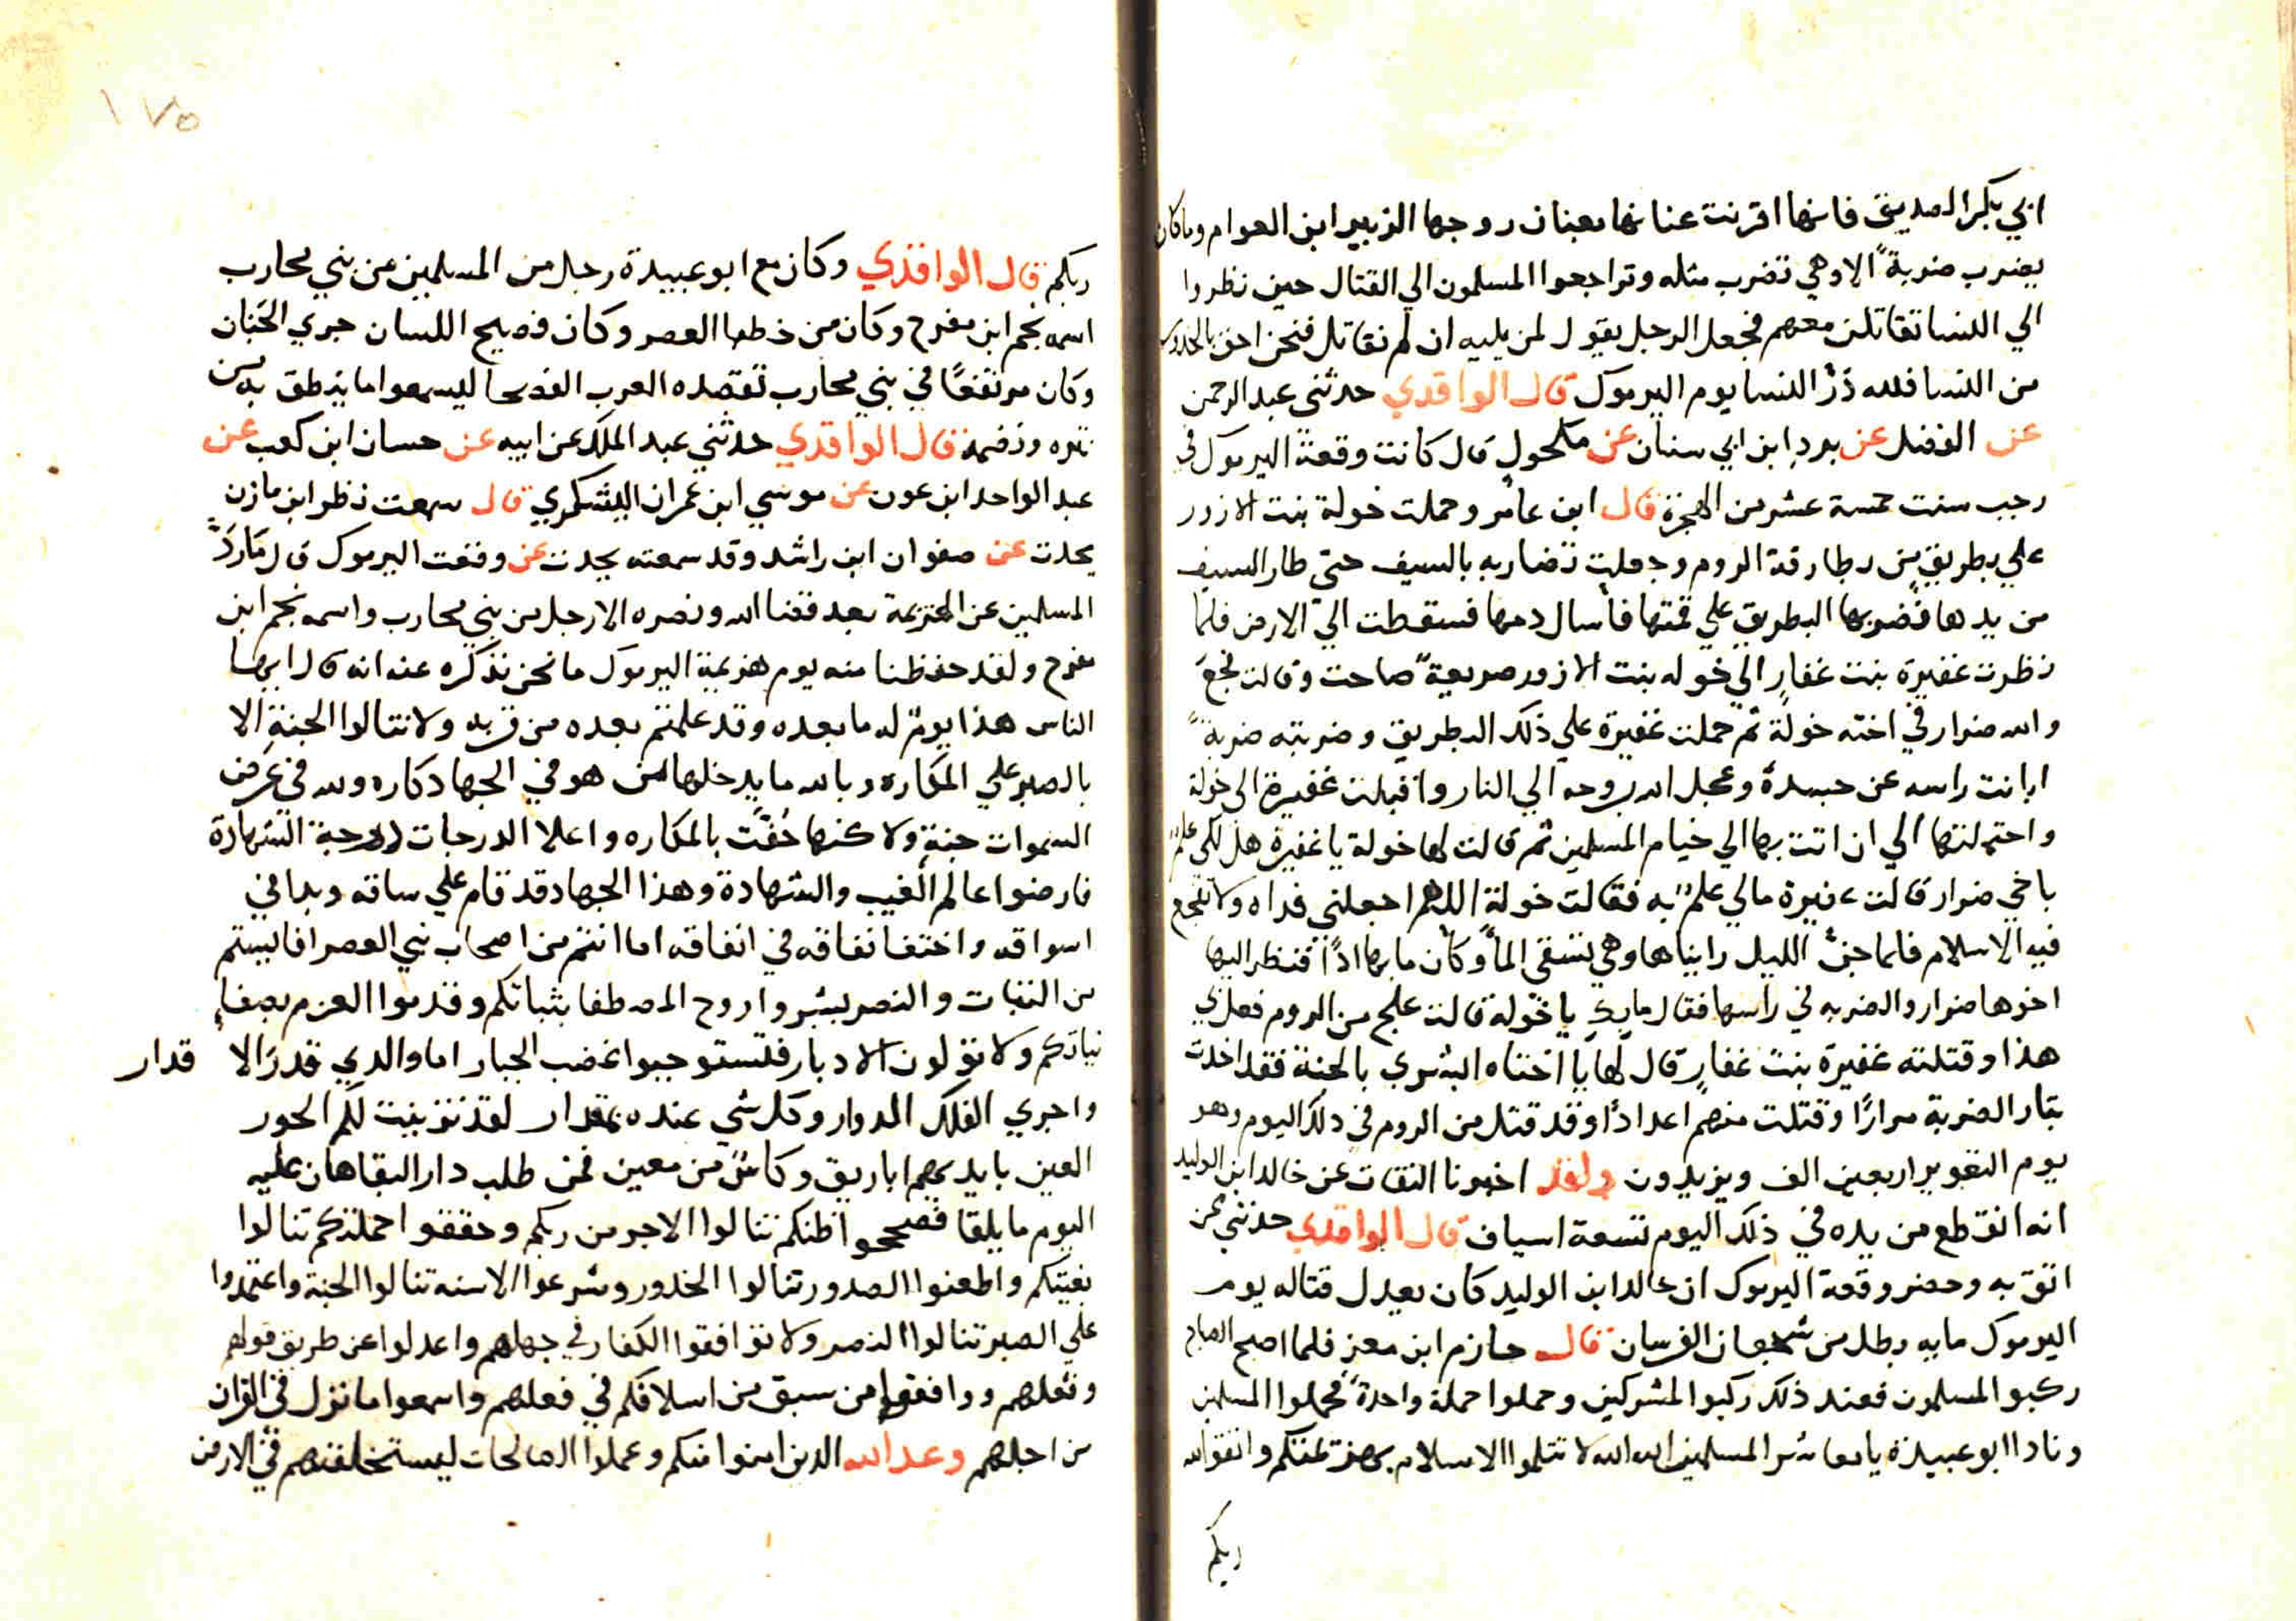 ابي بكر الصديق فانها اقرنت عنانها بعنان زوجها الزبير ابن العوام وما كان
يضرب ضربةً الا وهي تضرب مثله وتراجعوا المسلمون الي القتال حين نظروا
الي النسا تقاتلن معهم فجعل الرجل يقول لمن يليه ان لم نقاتل فنحن احق بالخدور
من النسا فلله دَرُ النسا يوم اليرموك قال الواقدي حدثني عبد الرحمن
عن الفضل عن بردِ ابن ابي سنان عن مكحول قال كانت وقعة اليرموك في
رجب سنت خمسة عشر من الهجرة قال ابن عامر وحملت خولة بنت الازور
علي بطريق من بطارقة الروم وجعلت تضاربه بالسيف حتي طار السيف
من يدها فضربها البطريق علي قمتها فأسال دمها فسقطت الي الارض فلما
نظرت عفيرة بنت غفارِ الي خوله بنت الازور صريعةً صاحت وقالت فجع
والله ضرار في اخته خولة ثم حملت عفيرة علي ذلك البطريق وضربته ضربةً
ابانت راسه عن جسده وعجل الله بروحه الي النار واقبلت غفيرة الي خولة
واحتملتها الي ان اتت بها الي خيام المسلمين ثم قالت لها خولة يا غفيرة هل لكي علمٌ
باخي ضرار قالت عفيرة مالي علمٌ به فقالت خولة اللهم اجعلني فداه ولا تفجع
فيه الاسلام فلما جنَّ الليل رايناها وهي تسقي الماً وكأن ما بها اذاً فنظر اليها
اخوها ضرار والضربه في راسها فقال ما بكِ يا خولة قالت علج من الروم فعل بي
هذا وقتلته غفيرة بنت غفارِ قال لها يا اختاه ابشري بالجنة فقد اخدت
بتار الضربة مرارًا وقتلت منهم اعدادًا وقد قتل من الروم في دلك اليوم وهو
يوم التعوير اربعين الف ويزيدون ولقد اخبرنا الثقات عن خالد ابن الوليد
انه انقطع من يده في ذلك اليوم تسعة اسياف قال الواقدي حدثني من
اتق به وحضر وقعة اليرموك ان خالد ابن الوليد كان يعدل قتاله يوم
اليرموك مايه بطل من شجعان الفرسان قال حازم ابن معنٍ فلما اصبح الصباح
ركبوا المسلمون فعند ذلك ركبوا المشركين وحملوا حملة واحدةً فحملوا المسلمين
ونادا ابو عبيدة يا معاشر المسلمين الله الله لا تثلموا الاسلام بهزيمتكم واتقوا الله
ربكم
١٧٥
ربكم قال الواقدي وكان مع ابو عبيدة رجل من المسلمين من بني محارب
اسمه نجم ابن مفرح وكان من خطبا العصر وكان فصيح اللسان جري الجَنان
وكان مرتفعًا في بني محارب تقصده العرب الفصحا ليسمعوا ما ينطق به من
نثره ونضمه قال الواقدي حدثني عبد الملك عن ابيه عن حسان ابن كعب عن
عبد الواحد ابن عون عن موسي ابن عمران اليشكري قال سمعت نظر ابن مازن
يحدت عن صفوان ابن راشد وقد سمعته يحدت عن وقعت اليرموك قال مَا رَدَّ
المسلمين عن الهزيمة بعد قضا الله ونصره الا رجل من بني محارب واسمه نجم ابن
مفرح ولقد حفظنا منه يوم هزيمة اليرموك ما نحن نذكره عنه انه قال ايها
الناس هذا يومٌ له ما بعده وقد علمتم بعده من قربه ولا تنالوا الجنة الا
بالصبر علي المكاره وبالله ما يدخلها من هو في الجهاد كاره ولله في عَرض
السموات جنةٍ ولاكنها حُفَّت بالمكاره واعلا الدرجات درجة الشهادة
فارضوا عالم الغيب والشهادة وهذا الجهاد قد قام علي ساقه وبدا في
اسواقه واختفا نفاقه في انفاقه اما انتم من اصحاب نبي العصر افاليستم
من الثبات والنصر بشروا روح المصطفا بثباتكم وقدموا العزم بصفاءِ
نياتكم ولا تولون الادبار فتستوجبوا غضب الجبار اما والدي قدرَ الا قدار
واجري الفلك الدوار وكل شي عنده بمقدار لقد تزينت لكم الحور
العين بايديهم اباريق وكاسٌ من معين فمن طلب دار البقا هان عليه
اليوم ما يلقا فصححوا ظنكم تنالوا الاجر من ربكم وحققوا حملتكم تنالوا
بغيتكم واطعنوا الصدور تنالوا الخدور وشرعوا الاسنه تنالوا الجنة واعتمدوا
علي الصبر تنالوا النصر ولا توافقوا الكفار في جهلهم واعدلوا عن طريق قولهم
وفعلهم ووافقوا من سبق من اسلافكم في فعلهم واسمعوا ما نزل في القران
من اجلهم وعد الله الدين امنوا منكم وعملوا الصالحات ليستخلفنهم في الارض